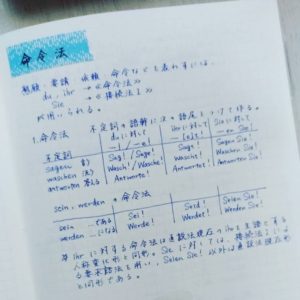 命令法
勧誘・要請・依頼・命令などを表わすには、
du, ihr → «命令法»
Sie → «接続法I»
が用いられる。
1. 命令法 不定詞の語幹に次の語尾をつけて作る。
不定詞 duに対して ihrに対して Sieに対して
—! / —e! —[e]t! —en Sie!
sagen 言う Sag! / Sage! Sagt! Sagen Sie!
waschen 洗う Wasch! / Wasche! Wascht! Waschen Sie!
antworten 答える Antworte! Antwortet! Antworten Sie!
sein, werden の命令法
sein …である Sei! Seid! Seien Sie!
werden …になる Werde! Werdet! Werden Sie!
※ ihrに対する命令法は直説法現在のihrを主語とする
人称変化形と同形。Sieに対しては、接続法Iによ
る要求話法を用い、Seien Sie! 以外は直説法現在形
と同形である。